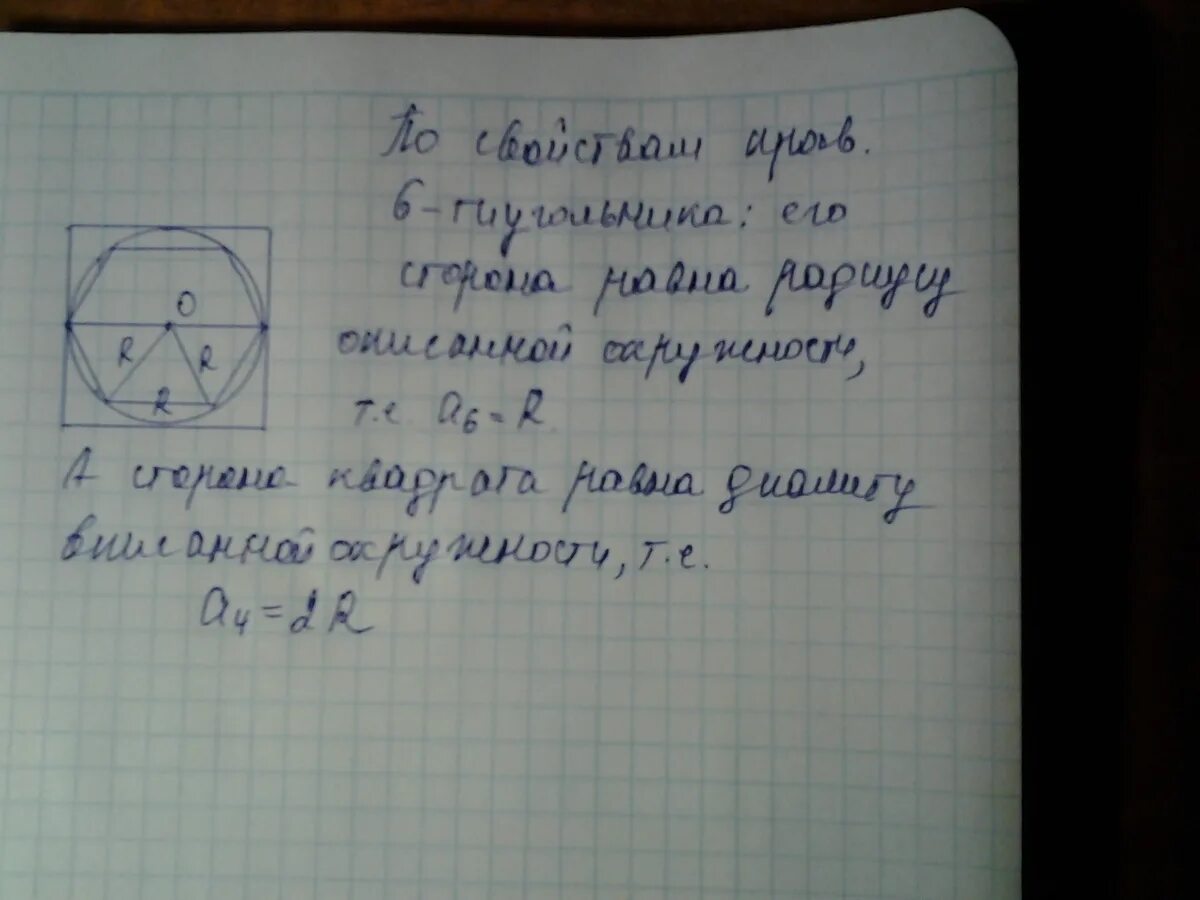 По свойствам прав.
6-тиугольника: его
сторона равна радиусу
описанной окружности,
т.е. a₆ = R
А сторона квадрата равна диаметру
вписанной окружности, т.е.
a₄ = 2R
O
R
R
R